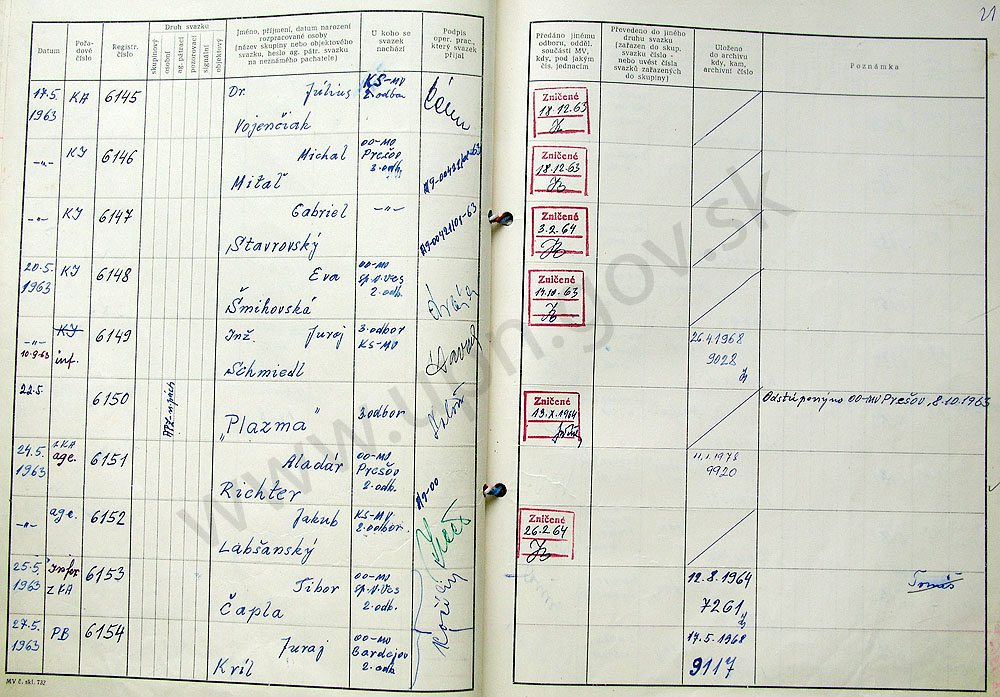 21
Datum
Pořadové číslo
Registr. číslo
Druh svazku
skupinový
osobní
ag. pátrací
pozorovací
signální
objektový
Jméno, příjmení, datum narození
rozpracované osoby
(název skupiny nebo objektového
svazku, heslo ag. pátr. svazku
na neznámého pachatele)
U koho se
svazek
nachází
Podpis
oper. prac.,
který svazek
přijal
Předáno jinému
odboru, odděl.
součásti MV,
kdy, pod jakým
čís. jednacím
Převedeno do jiného
druhu svazku
(zařazen do skup.
svazku číslo -
nebo uvést čísla
svazků zařazených
do skupiny)
Uloženo
do archivu
kdy, kam,
archivní číslo
Poznámka
17.5. 1963 KA 6145 Dr. Július Vojenčiak KS-MV 2. odbor
Zničené 18.12.63
-„- KI 6146 Michal Mitaľ OO-MV Prešov 3. odb.
Zničené 18.12.63
-„- KI 6147 Gabriel Stavrovský -„-
Zničené 3.2.64
20.5. 1963 KI 6148 Eva Šmihovská OO-MV Sp.N.Ves 2. odb.
Zničené 17.10.63
-„- 10.9.63 KI inf. 6149 Inž. Juraj Schmiedl 3. odbor KS-MV
26.4.1968 9028
22.5. 6150 „Plazma" 3. odbor
Zničené 13.X.1964
Odstúpený no OO-MV Prešov, 8.10.1963
24.5. 1963 age. 6151 Aladár Richter OO-MV Prešov 2. odb.
11.1.1978 9920
-„- age. 6152 Jakub Labšanský KS-MV 2. odbor.
Zničené 26.2.64
25.5. 1963 Infor z KA 6153 Tibor Čapla OO-MV Sp.N.Ves 2. odb.
12.8.1964 7261
27.5. 1963 PB 6154 Juraj Kríl OO-MV Bardejov 2. odb.
17.5.1968 9117
MV č. skl. 732
www.upn.gov.sk